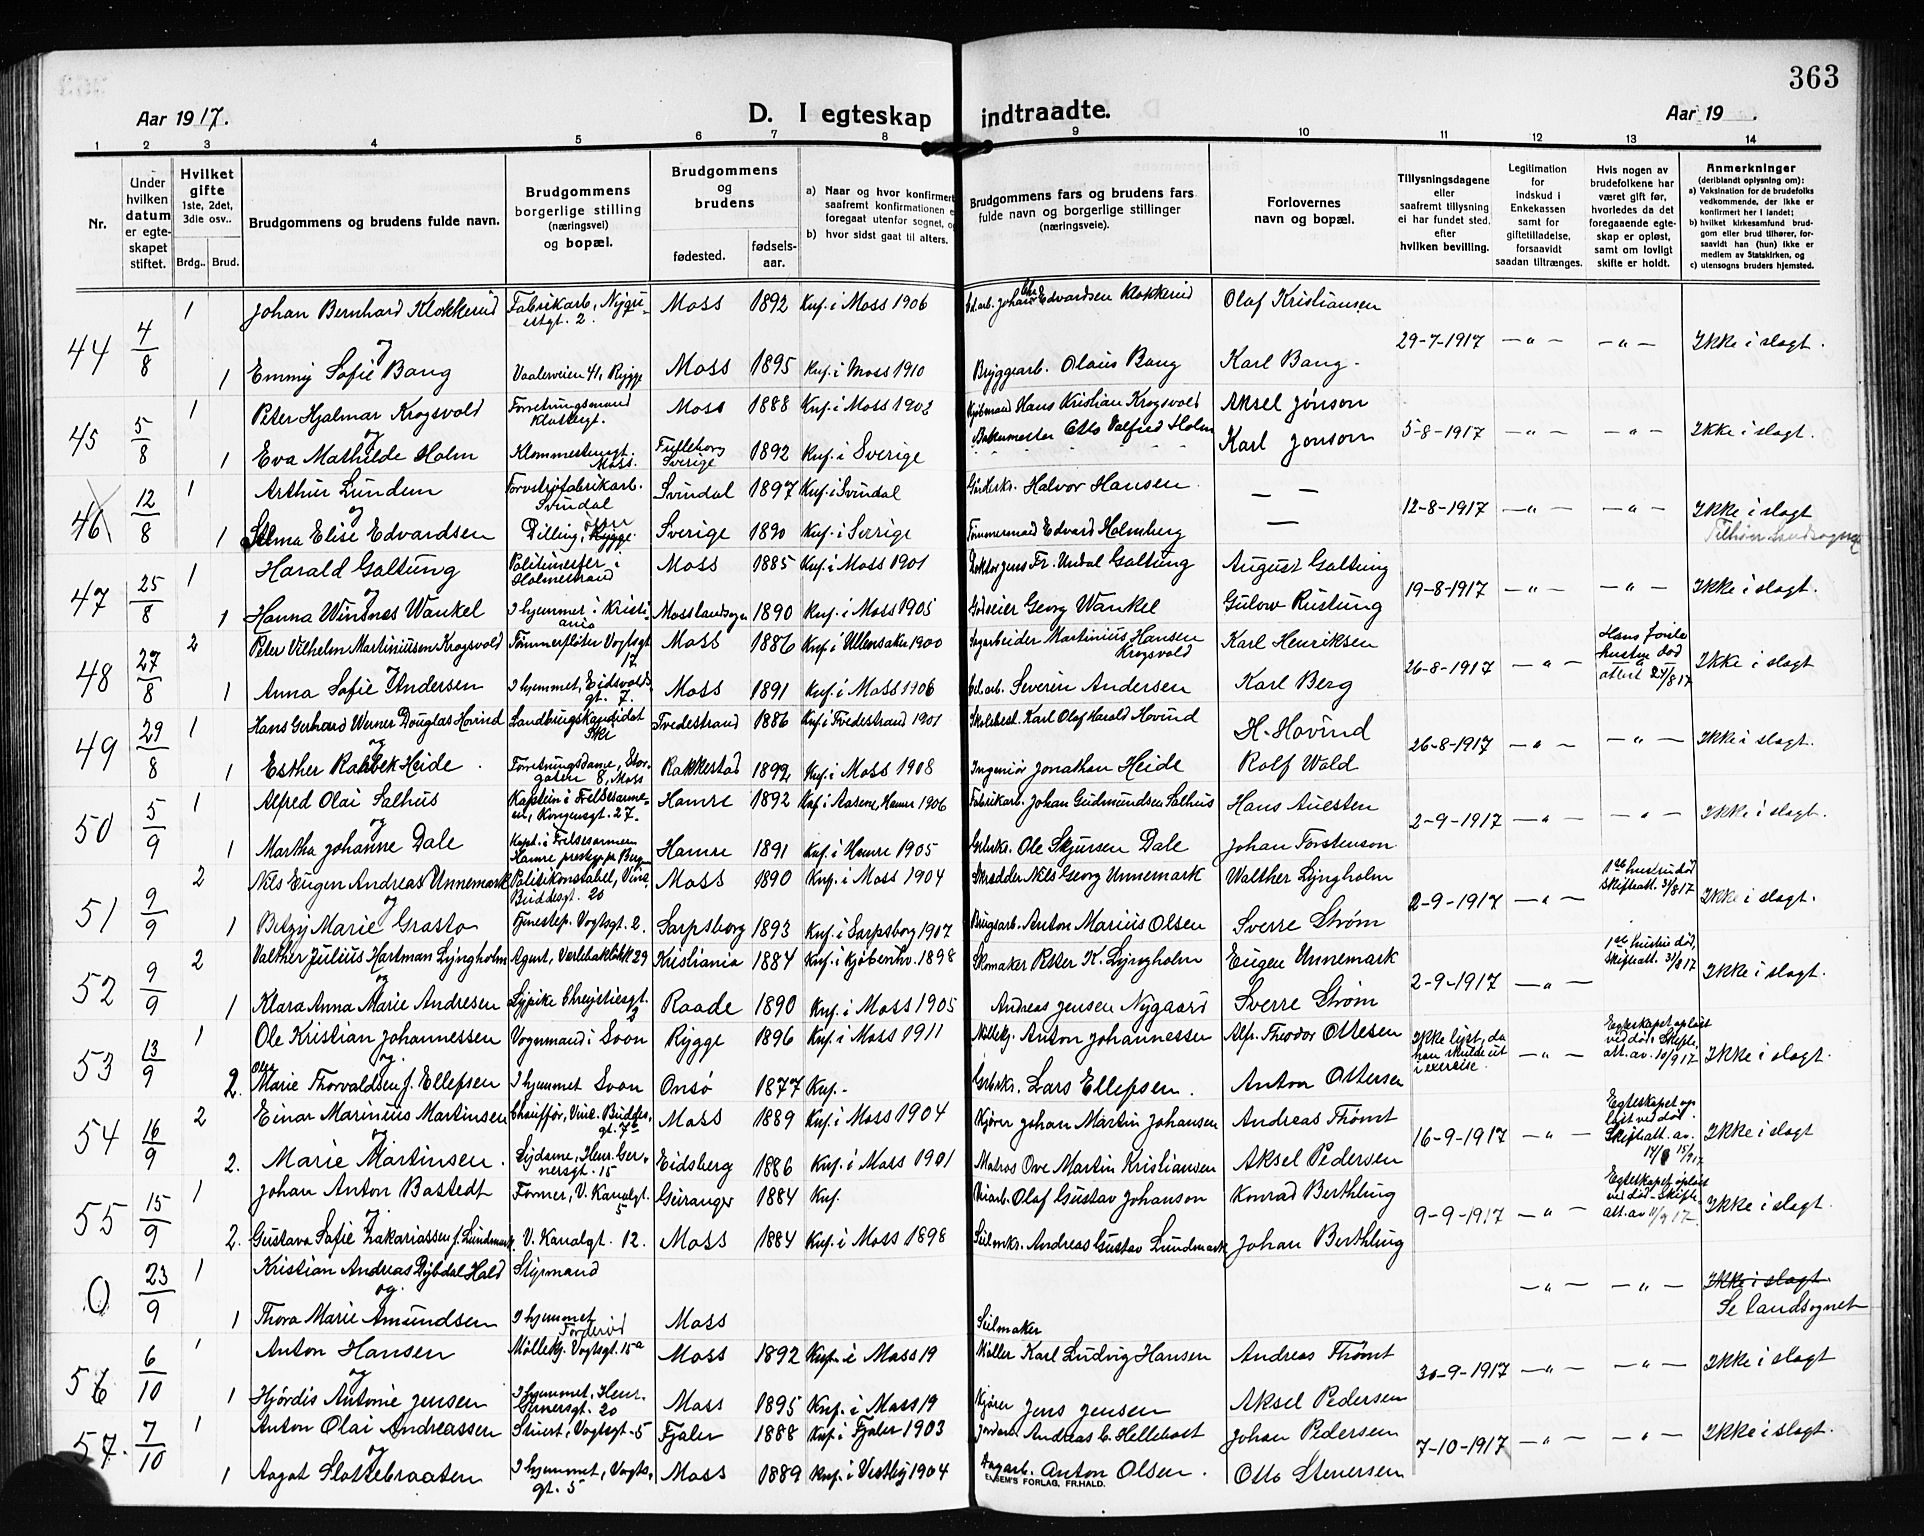 363
Aar 1917.
D. I egteskap indtraadte.
Aar 19 .
1 2 3 4 5 6 7 8 9 10 11 12 13 14
Nr.
Under hvilken datum er egteskapet stiftet.
Hvilket gifte 1ste, 2det, 3die osv..
Brdg.. Brud.
Brudgommens og brudens fulde navn.
Brudgommens borgerlige stilling (næringsvei) og bopæl.
Brudgommens og brudens
fødested.
fødsels-aar.
a) Naar og hvor konfirmert, saafremt konfirmationen er foregaat utenfor sognet, og
b) hvor sidst gaat til alters.
Brudgommens fars og brudens fars fulde navn og borgerlige stillinger (næringsveie).
Forlovernes navn og bopæl.
Tillysningsdagene eller saafremt tillysning ei har fundet sted, efter hvilken bevilling.
Legitimation for indskud i Enkekassen samt for giftetilladelse, forsaavidt saadan tiltrænges.
Hvis nogen av brudefolkene har været gift før, hvorledes da det foregaaende egteskap er opløst, samt om lovligt skifte er holdt.
Anmerkninger (deriblandt oplysning om):
a) Vaksination for de brudefolks vedkommende, der ikke er konfirmert her i landet;
b) hvilket kirkesamfund brudgom eller brud tilhører, forsaavidt han (hun) ikke er medlem av Statskirken, og
c) utensogns bruders hjemsted.
44 4/8 1 Johan Bernhard Klokkerud Fabrikarb, Nyqui-stgt. 2. Moss 1892 Knf. i Moss 1906 Edvardsen Klokkerud Olaf Kristiansen
og 29-7-1917 — " — — " — Ikke i slægt.
1 Emmy Sofie Bang Vaalerveien 41, Rygge Moss 1895 Knf. i Moss 1910 Bryggearb. Olaus Bang Karl Bang.
45 5/8 1 Peter Hjalmar Krogsvold Forretningsmand Klostergt. Moss 1888 Knf. i Moss 1902 Kjøbmand Hans Kristian Krogsvold Aksel Jonson
og 5-8-1917 — " — — " — Ikke i slægt.
1 Eva Mathilde Holm Moss. Sverige 1892 Knf. i Sverige Bakermester Otto Valfred Holm Karl Jonson
46 12/8 1 Arthur Lundem Torvstrøfabrikarb. Svindal Svindal 1897 Knf. i Svindal Gårdbrkr. Halvor Hansen — —
og 12-8-1917 — " — — " — Ikke i slægt
1 Selma Elise Edvardsen Dilling, Rygge Sverige 1890 Knf. i Sverige Tømmermand Edvard Holmberg — Tilhører landsognet
47 25/8 1 Harald Galtung Politimester i Holmestrand Moss 1885 Knf. i Moss 1901 Doktor Jens Fr. Undal Galtung August Galtung
og 19-8-1917 — " — — " — Ikke i slægt.
1 Hanna Windnes Wankel I hjemmet i Kristi-ania Mosslandsogn 1890 Knf. i Moss 1905 Godseier Georg Wankel Gulow Rustung
48 27/8 2 Peter Vilhelm Martiniussen Krogsvold Tømmerfløter Vogtsgt 17 Moss 1886 Knf. i Ullensaker 1900 Sagarbeider Martinius Hansen Krogsvold Karl Henriksen Hans første hustru død attest 24/8 17
og 26-8-1917 — " — Ikke i slægt
1 Anna Sofie Andersen I hjemmet, Eidsvolds-gt. 7. Moss 1891 Knf. i Moss 1906 Severin Andersen Karl Berg
49 29/8 1 Hans Gerhard Werner Douglas Hovind Landbrugskandidat Ski Tvedestrand 1886 Knf. i Tvedestrand 1901 Skolebest. Karl Olaf Harald Hovind H. Hovind
og 26-8-1917 — " — — " — Ikke i slægt.
1 Esther Rahbek Heide. Forretningsdame, Stor-gaten 8, Moss Rakkestad 1892 Knf. i Moss 1908 Ingeniør Jonathan Heide Rolf Wold
50 5/9 1 Alfred Olai Salhus Kaptein i Frelsesarme-en, Kongensgt. 27. Hamre 1892 Knf. i Aasene, Hamre 1906 Fabrikarb. Johan Gudmundsen Salhus Hans Austen
og 2-9-1917 — " — — " — Ikke i slægt.
1 Martha Johanne Dale Kapt. i Frelsesarmeen Hamre prestegj. pr Bergen Hamre 1891 Knf. i Hamre 1905 Grbrkr. Ole Skjursen Dale Johan Torstenson
51 9/9 2 Nils Eugen Andreas Unnemark Politikonstabel, Vinc. Buddesgt. 20 Moss 1890 Knf. i Moss 1904 Skrædder Nils Georg Unnemark Walther Lyngholm 1ste hustru død Skifteatt. 31/8 17
og 2-9-1917 — " — Ikke i slægt.
1 Betzy Marie Grasto Tjenestep. Vogtsgt. 2. Sarpsborg 1893 Knf. i Sarpsborg 1907 Brugsarb. Anton Marius Olsen Sverre Strøm
52 9/9 2 Valther Julius Hartman Lyngholm Agent, Værlebakken 29 Kristiania 1884 Knf. i Kjøbenhv. 1898 Skomaker Peter K. Lyngholm Eugen Unnemark 1ste hustru død, Skifteatt.
og 2-9-1917 — " — Ikke i slægt.
1 Klara Anna Marie Andresen Sypike Chrystiesgt. 3 Raade 1890 Knf. i Moss 1905 Andreas Jensen Nygaard Sverre Strøm
53 13/9 1 Ole Kristian Johannessen Vognmand i Soon Rygge 1896 Knf. i Moss 1911 Anton Johannessen Alfr. Theodor Ottesen Ikke lyst, da han skulde ut i exercise. Egteskapet opløst ved død. Skifte-att. av. 10/9 17
og. — " — Ikke i slægt.
2. Marie Thorvaldsen f. Ellefsen I hjemmet Soon Onsø 1877 Knf. - Grbrkr. Lars Ellefsen. Anton Ottersen
54 16/9 2 Einar Marinius Martinsen Chaufför, Vinc. Buddes-gt. 7b Moss 1889 Knf. i Moss 1904 Kjører Johan Martin Johansen Andreas Thømt Egteskapet op-løst ved død. Skifteatt. av.
og 16-9-1917 — " — Ikke i slægt
2. Marie Martinsen. Sydame, Henr. Ger-nersgt. 15 Eidsberg 1886 Knf. i Moss 1901 Matros Ove Martin Kristiansen Aksel Pedersen
55 15/9 1 Johan Anton Bastedt Former, V. Kanalgt. 5 Geiranger 1884 Knf. Olof Gustav Johanson Konrad Berthling Egteskapet opløst ved død - Skifte-att. av 11/9 17-
og. 9-9-1917 — " — Ikke i slægt.
2. Gustava Sofie Zakariassen f. Lundmark V. Kanalgt. 12. Moss 1884 Knf. i Moss 1898 Seilmkr. Andreas Gustav Lundmark Johan Berthling
0 23/9 1 Kristian Andreas Dybdal Hald Styrmand
og. — " — — " — Ikke i slægt.
1 Thora Marie Amundsen I hjemmet Moss Seilmaker Se landsognet
56 6/10 1 Anton Hansen Møllekj. Vogtsgt. 15a Moss 1892 Knf. i Moss 19 Møller Karl Ludvig Hansen Andreas Thømt
og 30-9-1917 — " — — " — Ikke i slægt
1 Hjørdis Antonie Jensen I hjemmet, Henr. Gernersgt. 20 Moss 1895 Knf. i Moss 19 Kjører Jens Jensen Aksel Pedersen
57. 7/10 1 Anton Olai Andreassen Stuert, Vogtsgt. 5 Fjaler 1888 Knf. i Fjaler 1903 Jordarb. Andreas C. Helletoft Johan Pedersen
og 7-10-1917 — " — — " — Ikke i slægt.
1 Aagot Slottebraaten I hjemmet, Vogts-gt. 5 Moss 1889 Knf. i Vestby 1904 Dagarb. Anton Olsen. Otto Stenersen
E. SEM'S FORLAG, FR.HALD.